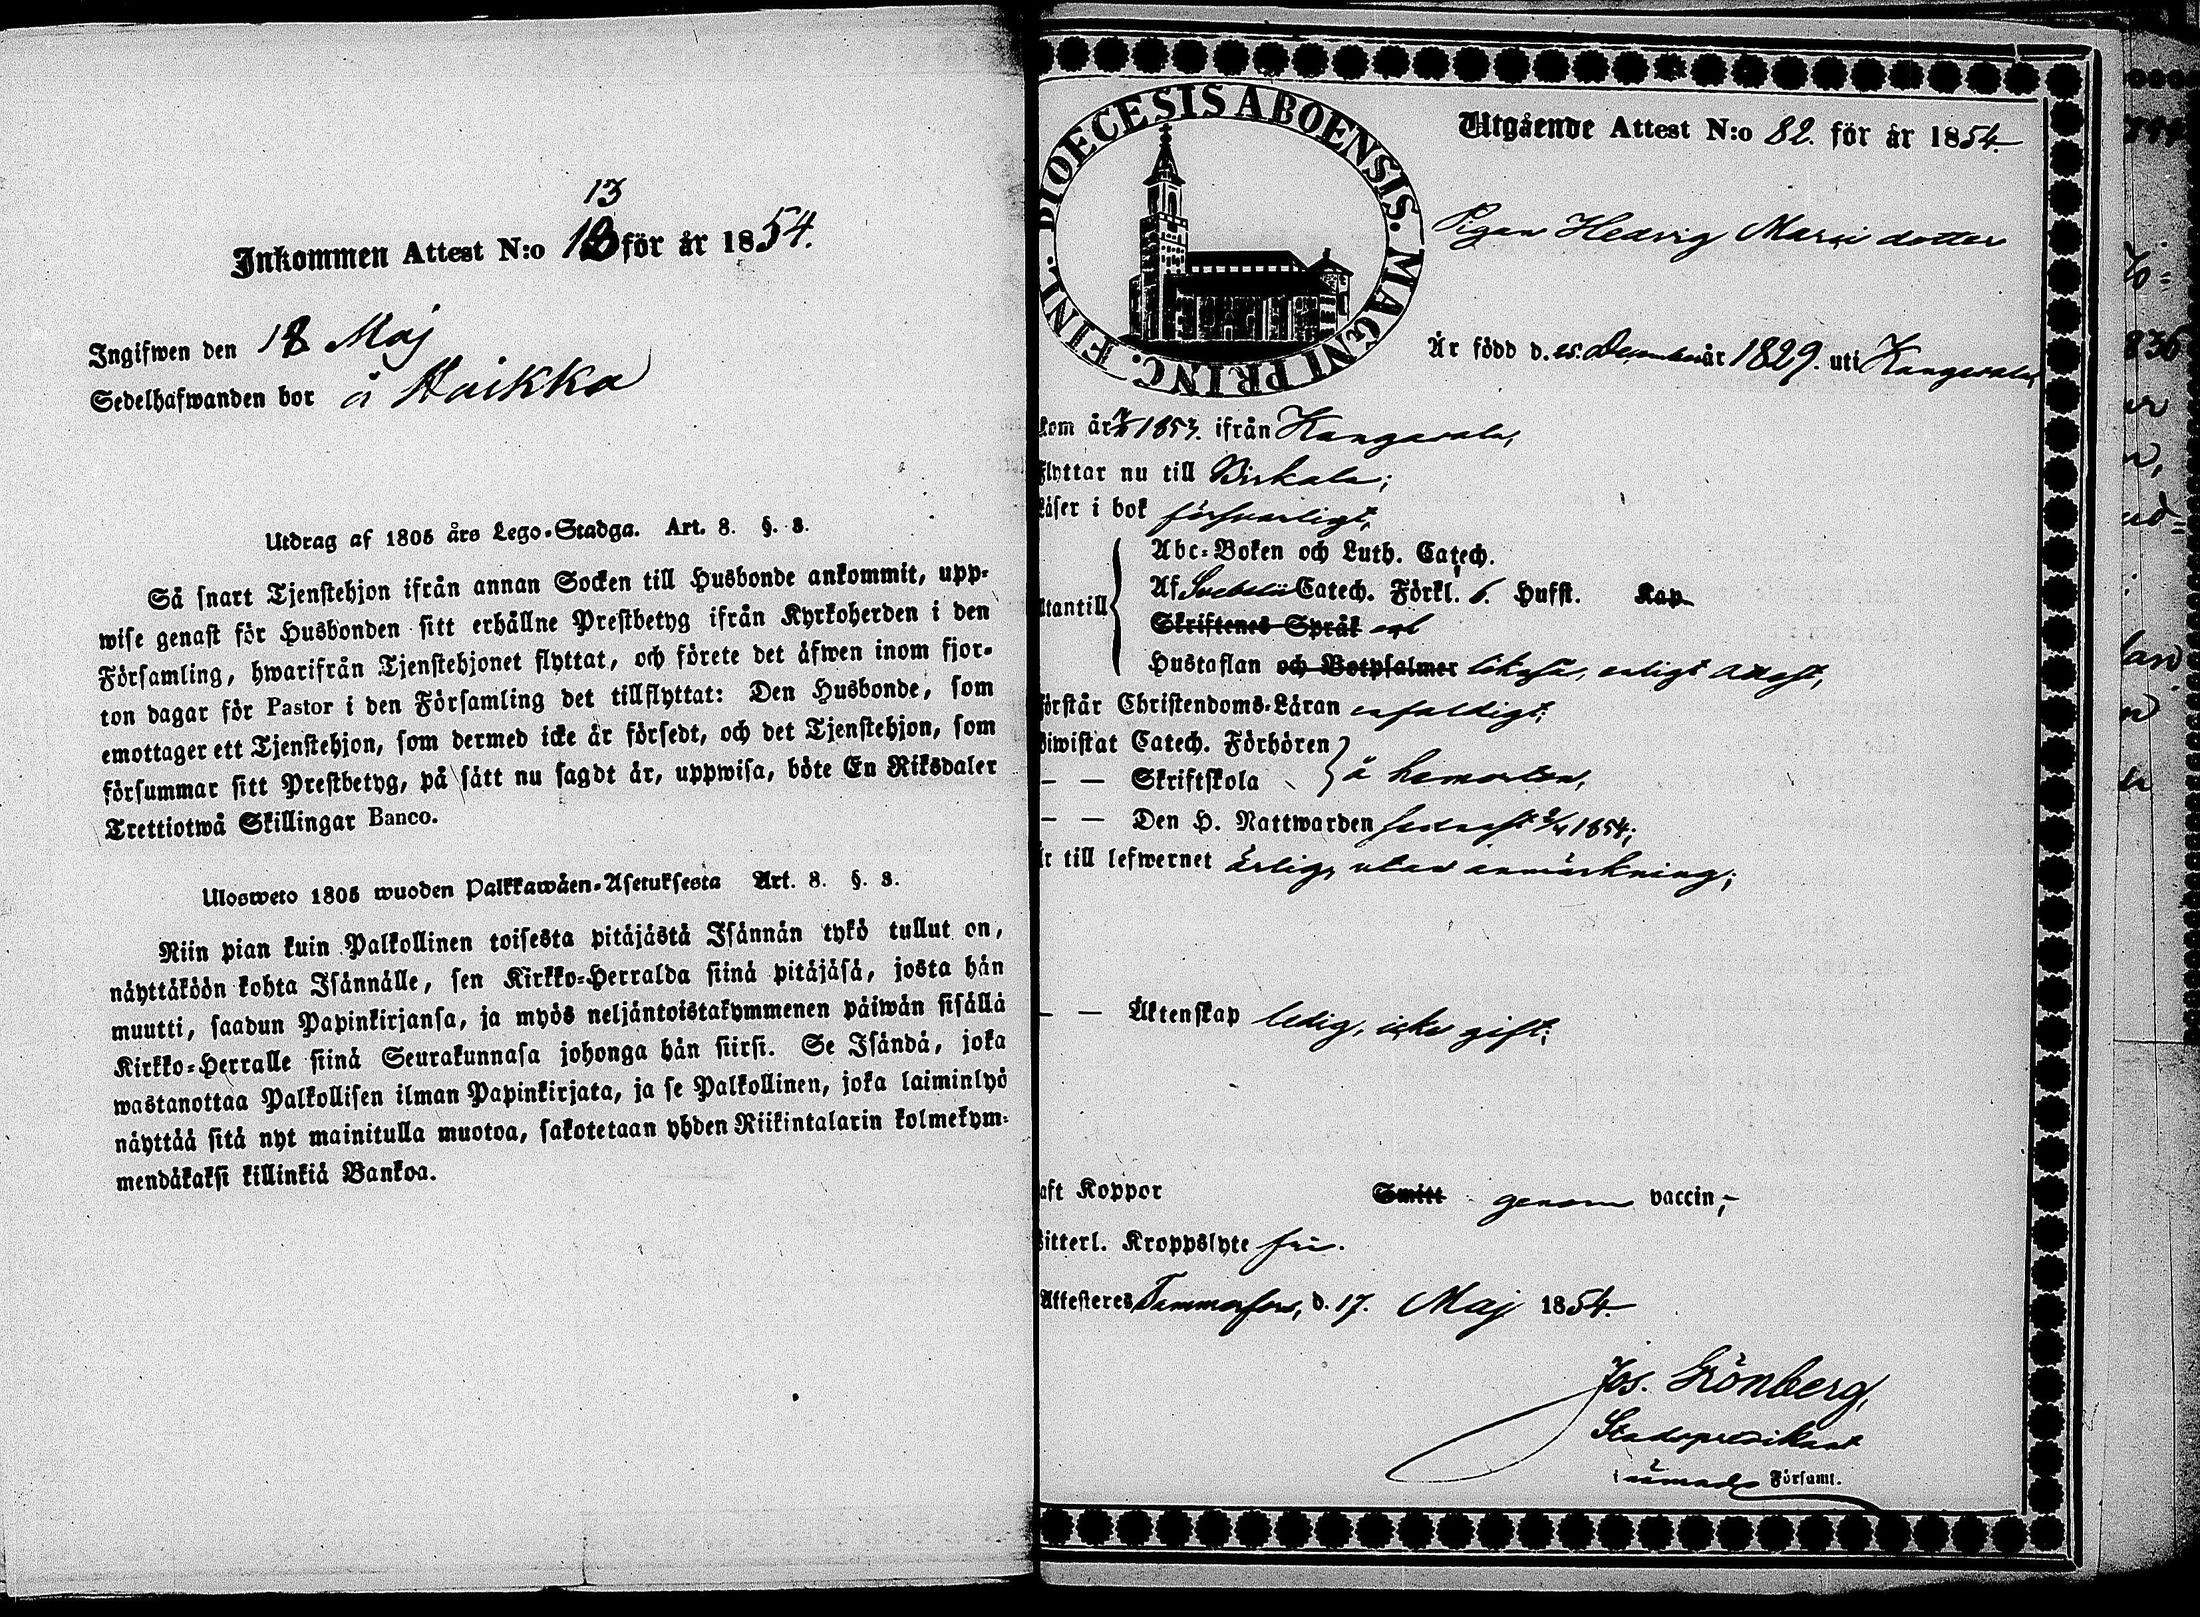 13
Inkommen Attest N:o 13 för år 1854.
Ingifwen den 18 Maj
Sedelhafwanden bor å Haikka
Utdrag af 1805 års Lego-Stadga. Art. 8. §. 8.
Så snart Tjenstehjon ifrån annan Socken till Husbonde ankommit, upp-
wise genast för Husbonden sitt erhållne Prestbetyg ifrån Kyrkoherden i den
Församling, hwarifrån Tjenstehjonet flyttat, och förete det äfwen inom fjor-
ton dagar för Pastor i den Församling det tillflyttat: Den Husbonde, som
emottager ett Tjenstehjon, som dermed icke är försedt, och det Tjenstehjon, som
försummar sitt Prestbetyg, på sätt nu sagdt är, uppwisa, böte En Riksdaler
Trettiotwå Skillingar Banco.
Ulosweto 1805 wuoden Palkkawäen-Asetuksesta Art. 8. §. 8.
Niin pian kuin Palkollinen toisesta pitäjästä Isännän tykö tullut on,
näyttäköön kohta Isännälle, sen Kirkko-Herralda siinä pitäjäsä, josta hän
muutti, saadun Papinkirjansa, ja myös neljäntoistakymmenen päiwän sisällä
Kirkko-Herralle siinä Seurakunnasa johonga hän siirsi. Se Isändä, joka
wastanottaa Palkollisen ilman Papinkirjata, ja se Palkollinen, joka laiminlyö
näyttää sitä nyt mainitulla muotoa, sakotetaan yhden Riikintalarin kolmekym-
mendäkaksi killinkiä Bankoa.
DIOECESIS ABOENSIS. MAGNI PRINC. FINL.
Utgående Attest N:o 82. för år 1854.
Pigan Hedvig Mariædotter
Är född d. 25. December år 1829. uti Kangasala,
kom år 1853. ifrån Kangasala,
flyttar nu till Birkala;
läser i bok försvarligt,
Abc-Boken och Luth. Catech.
Utantill Af Svebelii Catech. Förkl. 6. Hufst. Kap
Skriftenes Språk och
Hustaflan och Botpsalmer likaså, enligt attest,
förstår Christendoms-Läran enfaldigt;
biwistat Catech. Förhören
— — Skriftskola å hemorten,
— — Den H. Nattwarden sednast 2/4 1854;
är till lefwernet ärlig, utan anmärkning;
— — Äktenskap ledig, icke gift;
haft Koppor Smitt genom vaccin;
Bitterl. Kroppslyte fri.
Attesteres Tammerfors, d. 17. Maj 1854.
Jos. Grönberg,
Stadspredikant
i nämnde Församl.